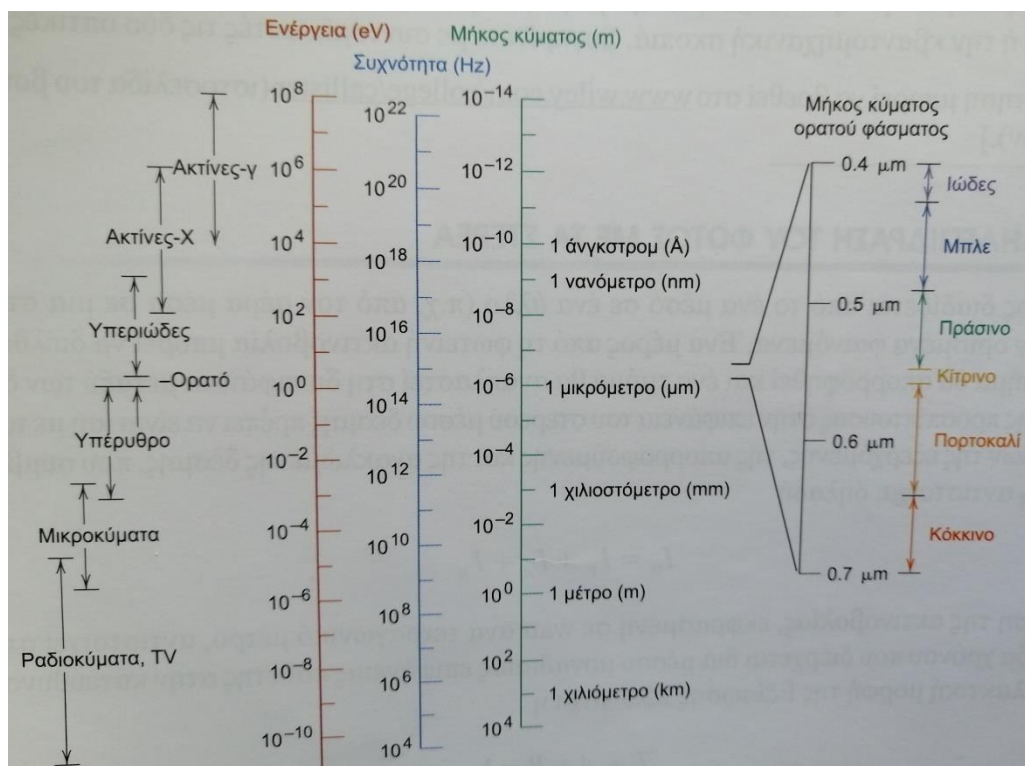 Ενέργεια (eV)
Συχνότητα (Hz)
Μήκος κύματος (m)
Μήκος κύματος
ορατού φάσματος
Ακτίνες-γ
Ακτίνες-X
Υπεριώδες
Ορατό
Υπέρυθρο
Μικροκύματα
Ραδιοκύματα, TV
10⁸
10⁶
10⁴
10²
10⁰
10⁻²
10⁻⁴
10⁻⁶
10⁻⁸
10⁻¹⁰
10²²
10²⁰
10¹⁸
10¹⁶
10¹⁴
10¹²
10¹⁰
10⁸
10⁶
10⁴
10⁻¹⁴
10⁻¹²
10⁻¹⁰
10⁻⁸
10⁻⁶
10⁻⁴
10⁻²
10⁰
10²
10⁴
1 άνγκστρομ (Å)
1 νανόμετρο (nm)
1 μικρόμετρο (μm)
1 χιλιοστόμετρο (mm)
1 μέτρο (m)
1 χιλιόμετρο (km)
0.4 μm
0.5 μm
0.6 μm
0.7 μm
Ιώδες
Μπλε
Πράσινο
Κίτρινο
Πορτοκαλί
Κόκκινο